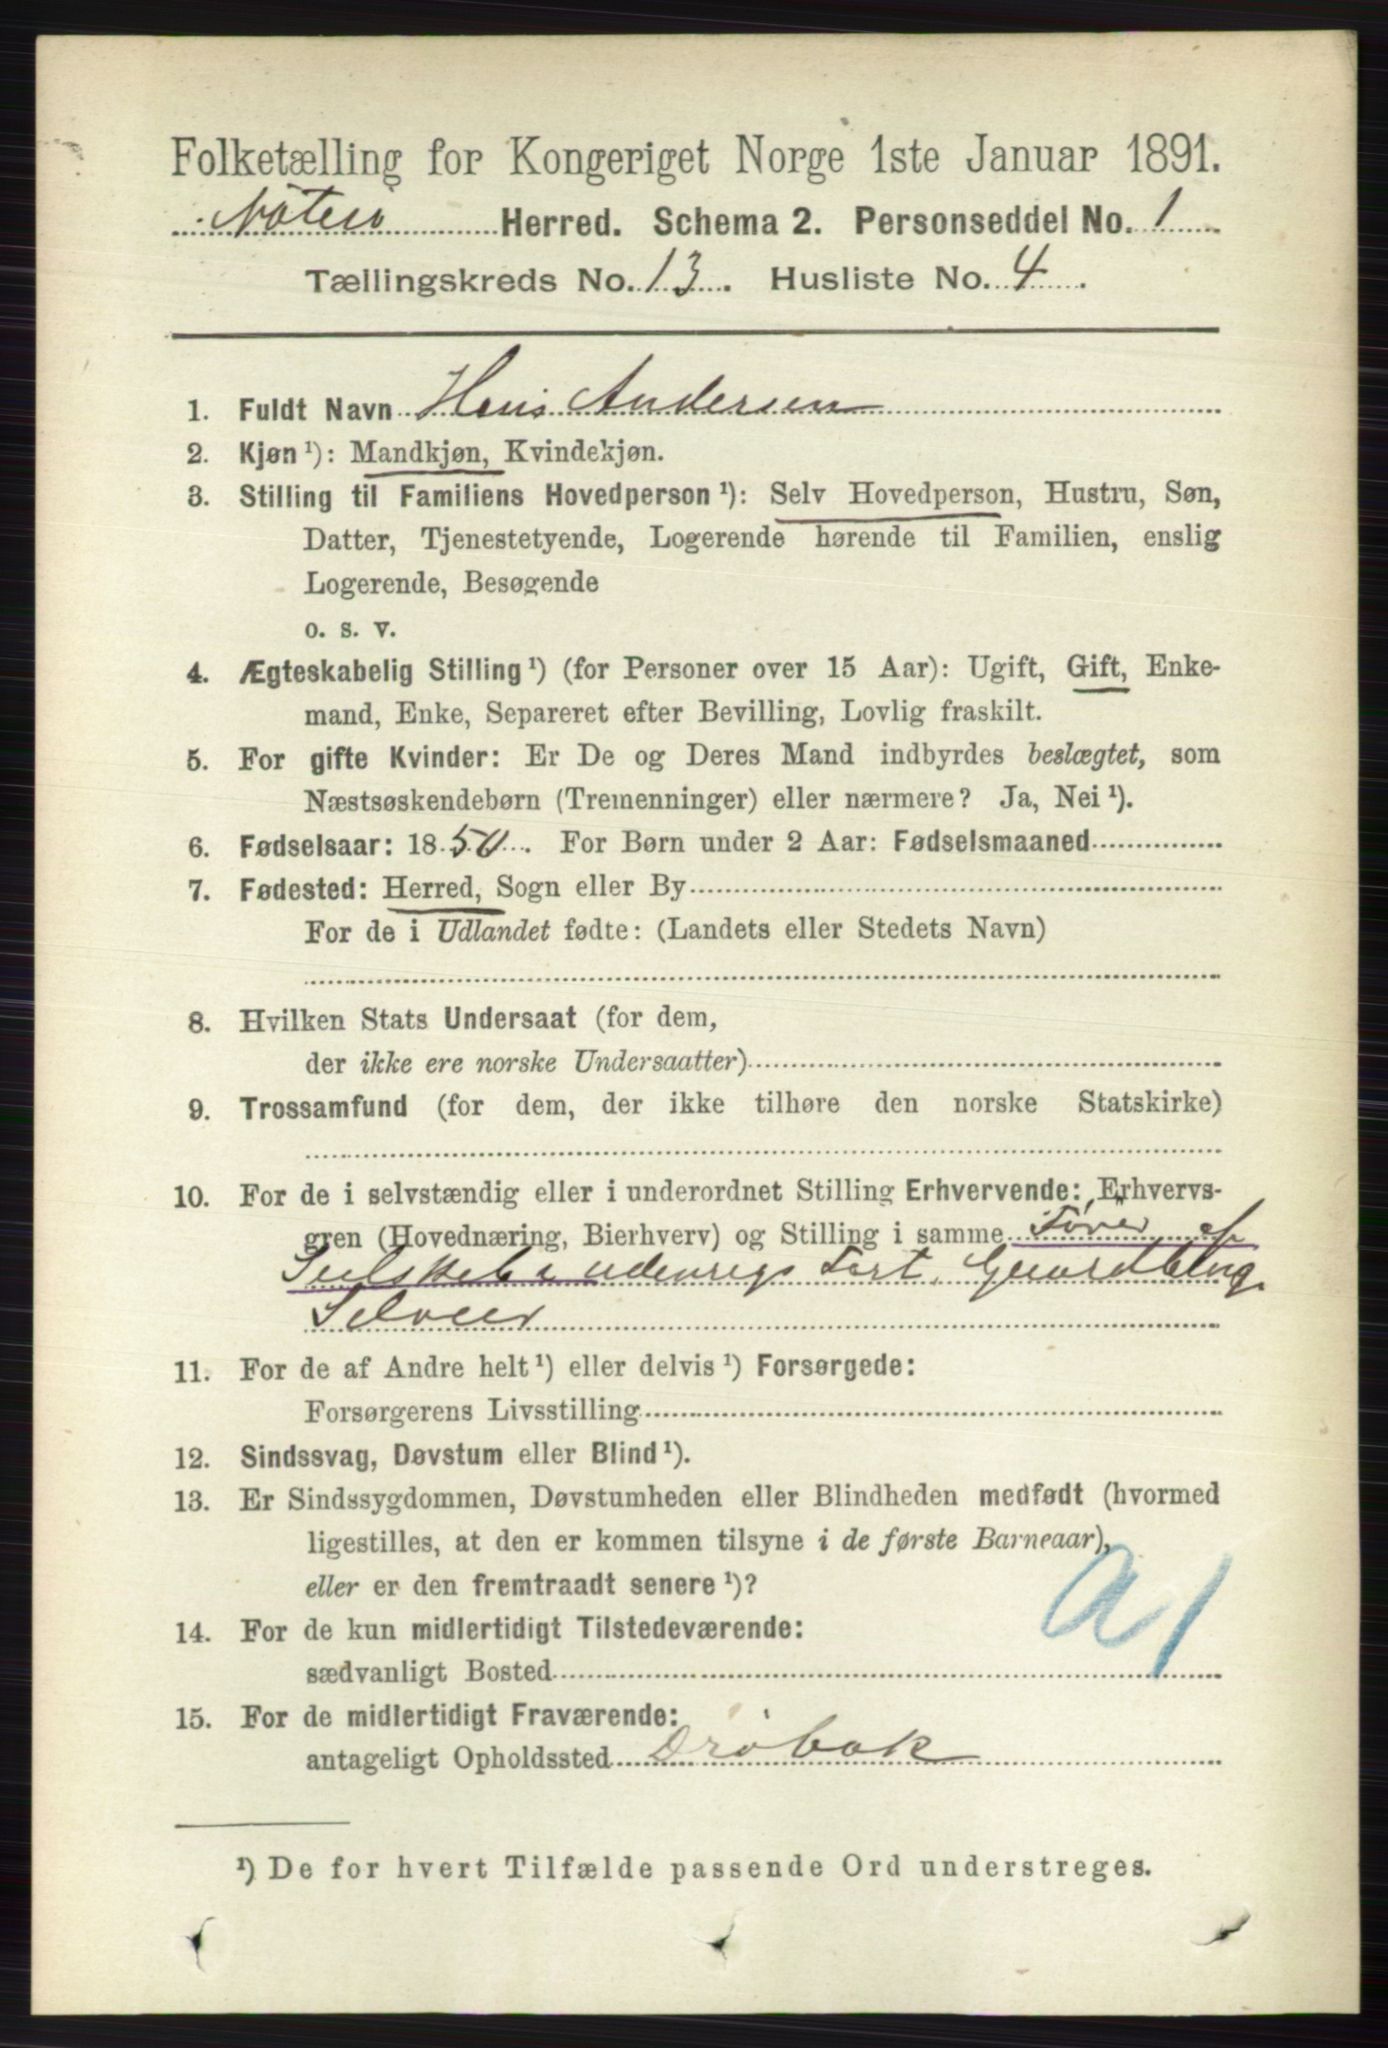 Folketælling for Kongeriget Norge 1ste Januar 1891.
Nøterø Herred. Schema 2. Personseddel No. 1
Tællingskreds No. 13. Husliste No. 4.
1. Fuldt Navn Hans Andersen
2. Kjøn ¹): Mandkjøn, Kvindekjøn.
3. Stilling til Familiens Hovedperson ¹): Selv Hovedperson, Hustru, Søn,
Datter, Tjenestetyende, Logerende hørende til Familien, enslig
Logerende, Besøgende
o. s. v.
4. Ægteskabelig Stilling ¹) (for Personer over 15 Aar): Ugift, Gift, Enke-
mand, Enke, Separeret efter Bevilling, Lovlig fraskilt.
5. For gifte Kvinder: Er De og Deres Mand indbyrdes beslægtet, som
Næstsøskendebørn (Tremenninger) eller nærmere? Ja, Nei ¹).
6. Fødselsaar: 1850. For Børn under 2 Aar: Fødselsmaaned
7. Fødested: Herred, Sogn eller By
For de i Udlandet fødte: (Landets eller Stedets Navn)
8. Hvilken Stats Undersaat (for dem,
der ikke ere norske Undersaatter)
9. Trossamfund (for dem, der ikke tilhøre den norske Statskirke)
10. For de i selvstændig eller i underordnet Stilling Erhvervende: Erhvervs-
gren (Hovednæring, Bierhverv) og Stilling i samme Fører af
Seilskib i udenrigs Fart, Gaardbrug
Selveier
11. For de af Andre helt ¹) eller delvis ¹) Forsørgede:
Forsørgerens Livsstilling
12. Sindssvag, Døvstum eller Blind ¹).
13. Er Sindssygdommen, Døvstumheden eller Blindheden medfødt (hvormed
ligestilles, at den er kommen tilsyne i de første Barneaar),
eller er den fremtraadt senere ¹)?
a 1
14. For de kun midlertidigt Tilstedeværende:
sædvanligt Bosted
15. For de midlertidigt Fraværende:
antageligt Opholdssted Drøbak
¹) De for hvert Tilfælde passende Ord understreges.